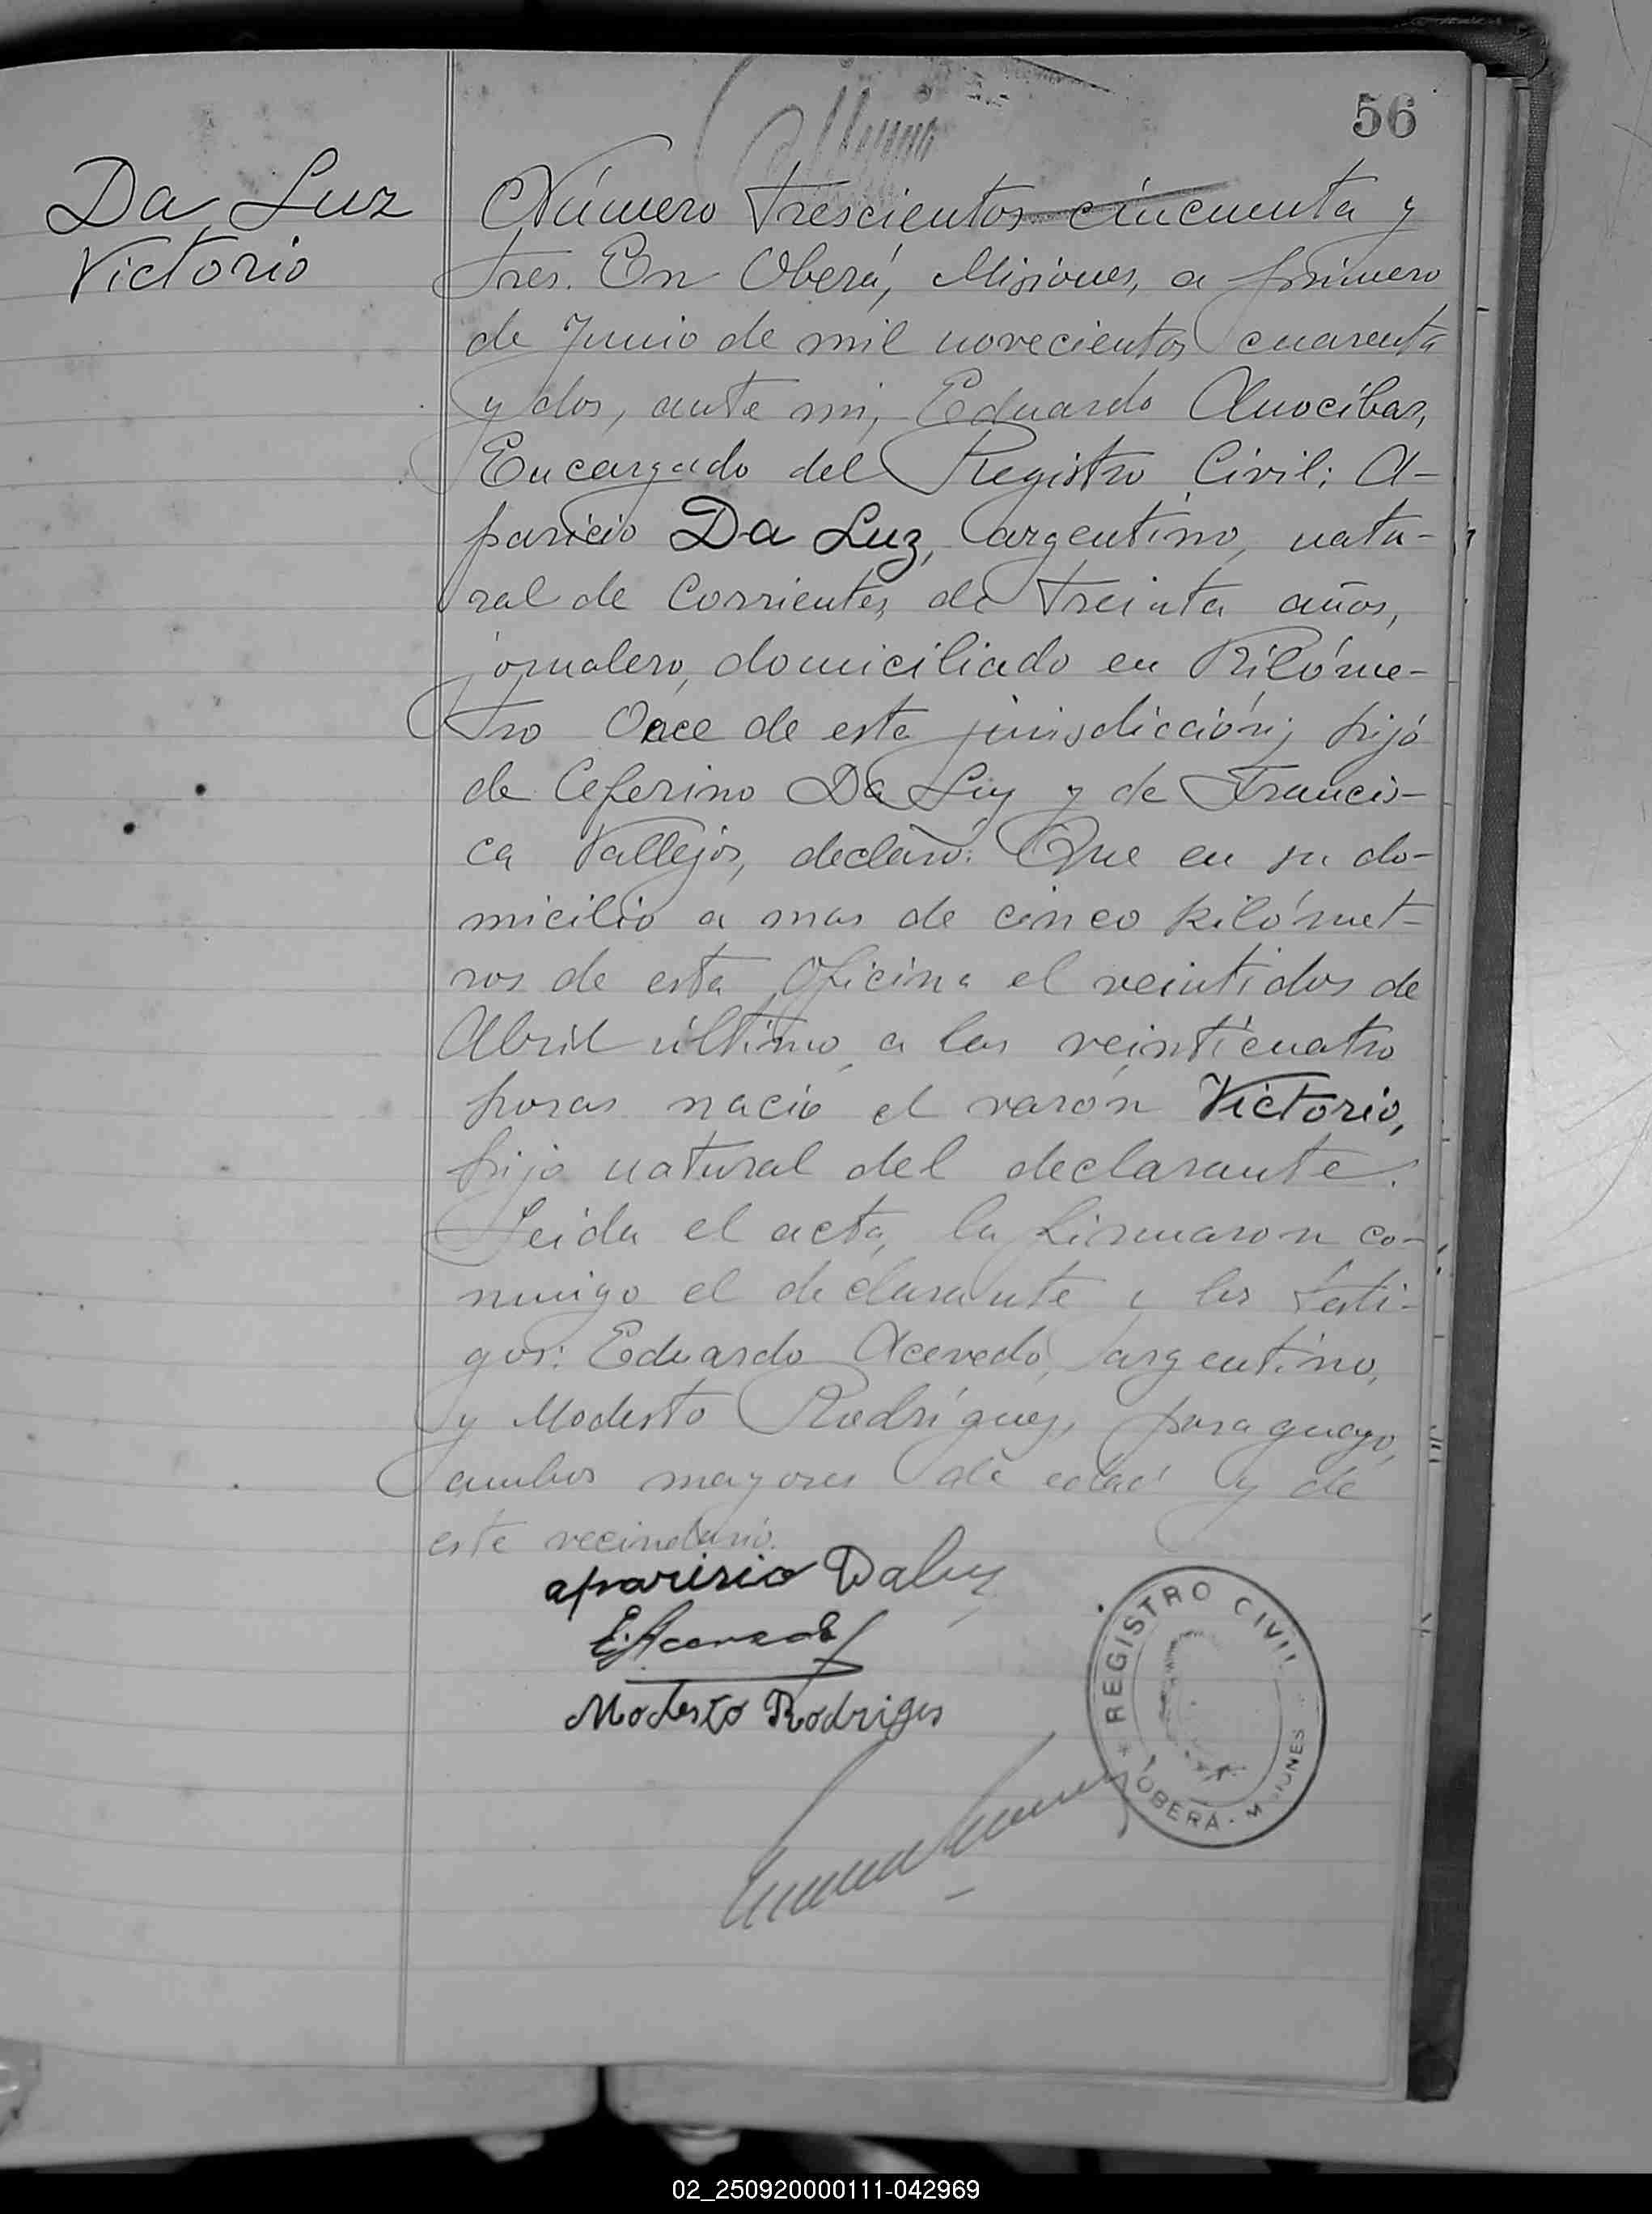 56
Da Luz
Victorio
Número trescientos cincuenta y
tres. En Oberá, Misiones, a primero
de Junio de mil novecientos cuarenta
y dos, ante mi, Eduardo Anocíbar,
Encargado del Registro Civil; A-
paricio Da Luz, argentino, natu-
ral de Corrientes, de treinta años,
jornalero, domiciliado en Kilóme-
tro Once de esta jurisdicción; hijo
de Ceferino Da Luz y de Francis-
ca Vallejos, declaró: Que en su do-
micilio a mas de cinco kilómet-
ros de esta Oficina el veintidos de
Abril último, a las veinticuatro
horas nació el varón Victorio,
hijo natural del declarante.
Leida el acta, la firmaron co-
nmigo el declarante y los testi-
gos: Eduardo Acevedo, argentino,
y Modesto Rodríguez, paraguayo,
ambos mayores de edad y de
este vecindario.
aparisio Daluz
E. Acevedo
Modesto Rodriges
* REGISTRO CIVIL *
OBERÁ - MISIONES
02_250920000111-042969